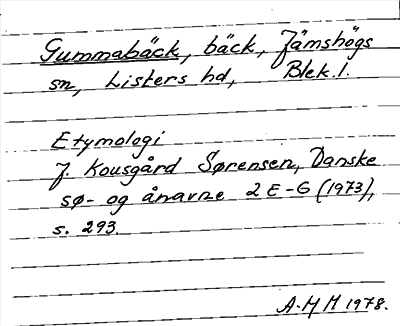 Gummabäck, bäck, Jämshögs
sn, Listers hd, Blek. l.
Etymologi
J. Kousgård Sørensen, Danske
sø- og ånavne 2 E-G (1973),
s. 293.
A.M M 1978.